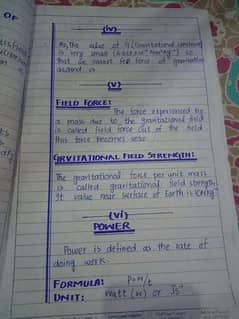 (iv)
As, The value of G (Gravitational constant)
is very small (6.673x10⁻¹¹Nm²kg⁻²) so
that we cannot feel force of gravitation
around
(v)
FIELD FORCE:
The force experienced by
a mass due to the gravitational field
is called field force out of the field
this force becomes zero
GRVITATIONAL FIELD STRENGTH:
The gravitational force per unit mass
is called gravitational field strength
It value near surface of Earth is 10Nkg⁻¹
(vi)
POWER
Power is defined as the rate of
doing work.
FORMULA: P=W/t
UNIT: Watt (W) or Js⁻¹